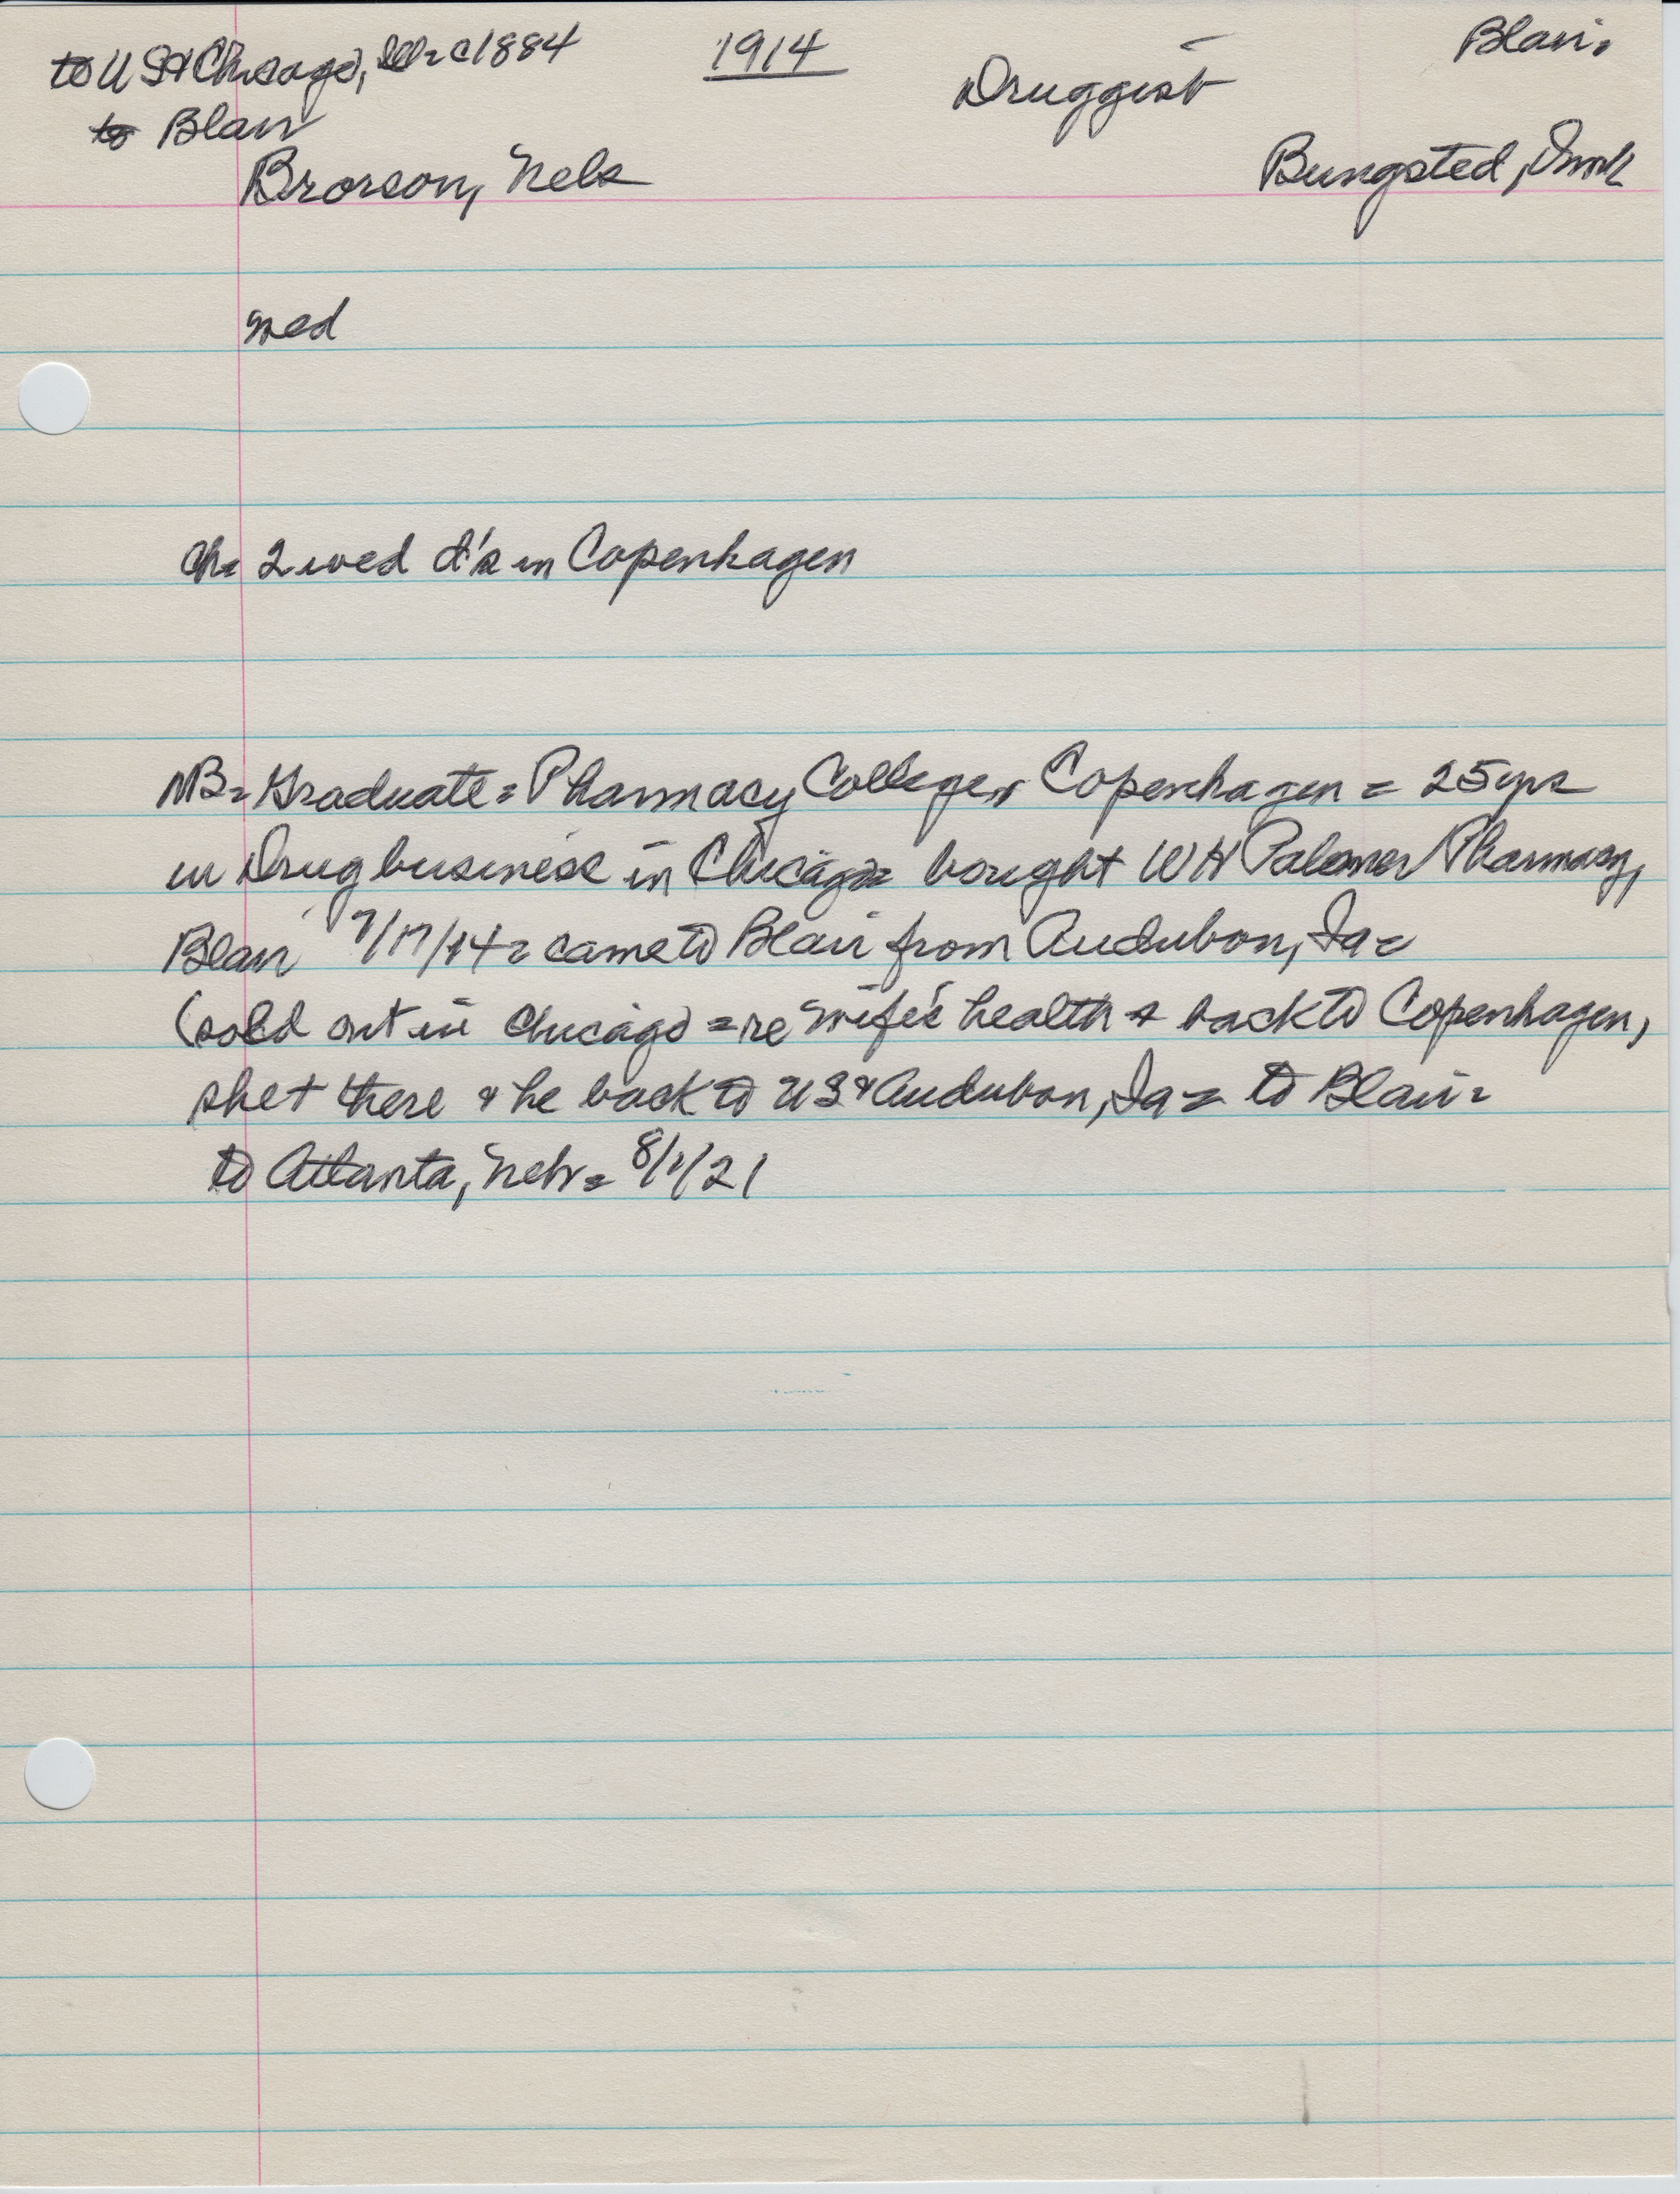 to US & Chicago, Ill = c1884 1914 Druggist Blair.
to Blair
Brorson, Nels Bungsted, Dmk
med
Ch = 2 wed d's in Copenhagen
NB = Graduate = Pharmacy College, Copenhagen = 25 yrs
in Drug business in Chicago = bought WH Palmer Pharmacy,
Blair 7/17/14 = came to Blair from Audubon, Ia =
(sold out in Chicago = re wife's health & back to Copenhagen,
she + there & he back to US & Audubon, Ia = to Blair =
to Atlanta, Nebr = 8/1/21